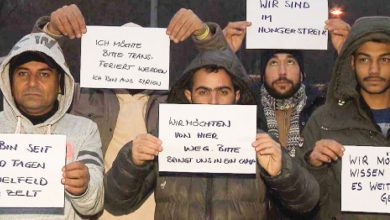 ICH MÖCHTE
BITTE TRANS-
FERIERT WERDEN
ICH BIN AUS SYRIEN
WIR SIND
IM
HUNGERSTREIK
BIN SEIT
TAGEN
ELFELD
ZELT
WIR MÖCHTEN
VON HIER
WEG. BITTE
BRINGT UNS IN EIN CAMP
WIR MÖCH
WISSEN
ES WEIT
GE